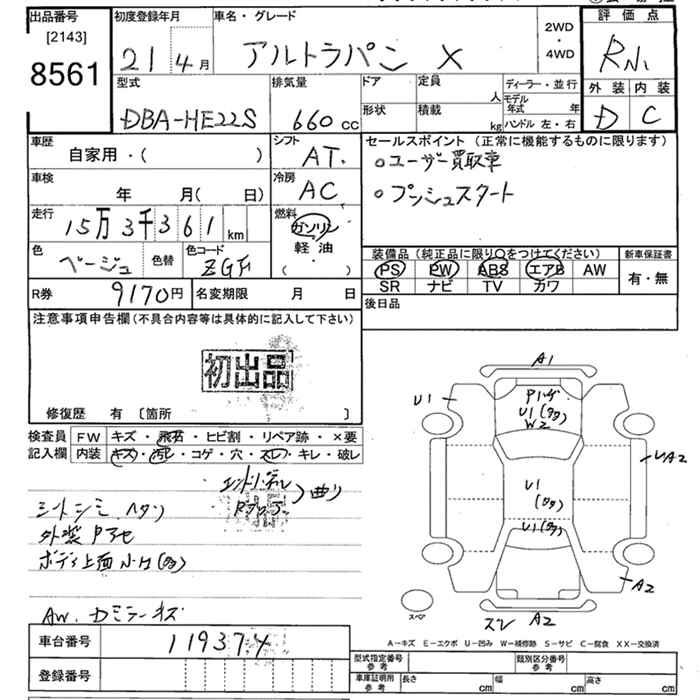 出品番号
[2143]
8561
初度登録年月
21 4月
車名・グレード
アルトラパン X
2WD
・
4WD
評価点
外装 内装
D C
型式
DBA-HE22S
排気量
660 cc
ドア
定員
人
形状
積載
kg
ディーラー・並行
モデル年式 年
ハンドル 左・右
車歴
自家用・( )
シフト
AT.
セールスポイント (正常に機能するものに限ります)
○ユーザー買取車
○プッシュスタート
車検
年 月( 日)
冷房
AC
走行
15万3千361 km
燃料
ガソリン
軽油
( )
色
ベージュ
色替
色コード
装備品 (純正品に限り○をつけてください)
PS PW ABS エアB AW
SR ナビ TV カワ
新車保証書
有・無
R券
9170円
名変期限 月 日
後日品
注意事項申告欄(不具合内容等は具体的に記入して下さい)
初出品
修復歴 有 〔箇所 〕
検査員
記入欄
FW キズ・飛石・ヒビ割・リペア跡・×要
内装 キズ・汚レ・コゲ・穴・スレ・キレ・破レ
曲り
シートシミ ヘタリ
外装
ボディ上面 小H(多)
AW. Dミラーキズ
A1
U1
U1(多)
W2
U1
(多)
U1(多)
A2
A2
スレ
スペア
A-キズ E-エクボ U-凹み W-補修跡 S-サビ C-腐食 XX-交換済
車台番号
119374
登録番号
型式指定番号
参考
類別区分番号
参考
車庫証明用
参考
長さ cm
幅 cm
高さ cm